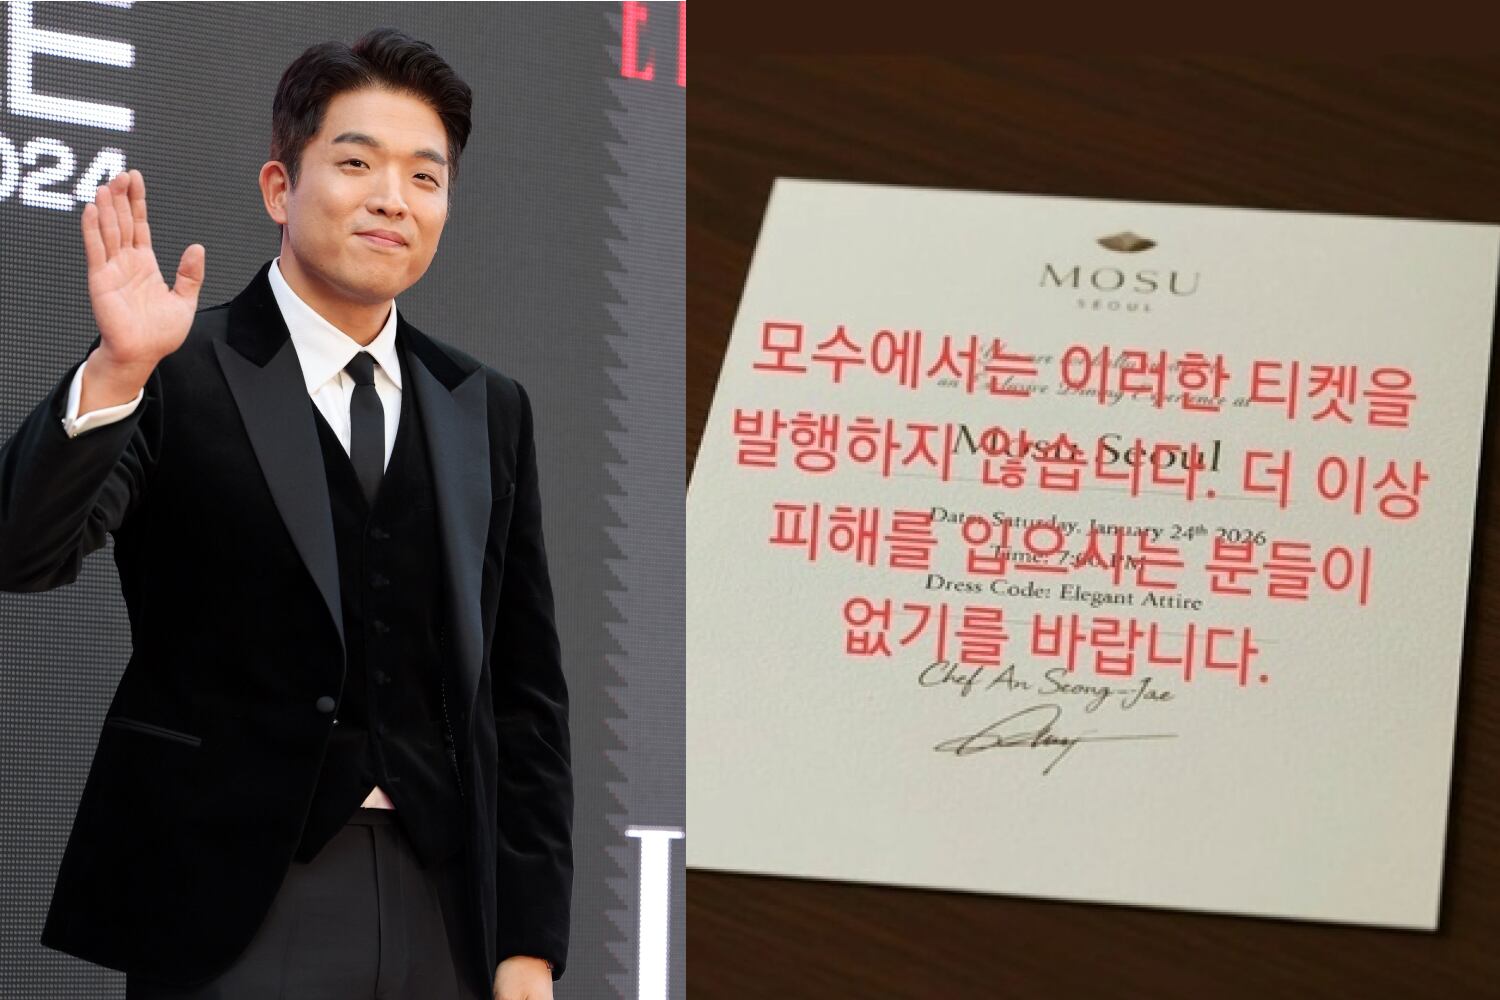 E
024
MOSU
SEOUL
모수에서는 이러한 티켓을
an Exclusive Dining Experience at
발행하지 않습니다. 더 이상
Mosu Seoul
피해를 입으시는 분들이
Date: Saturday, January 24th 2026
Time: 7:00 PM
Dress Code: Elegant Attire
없기를 바랍니다.
Chef An Seong-Jae